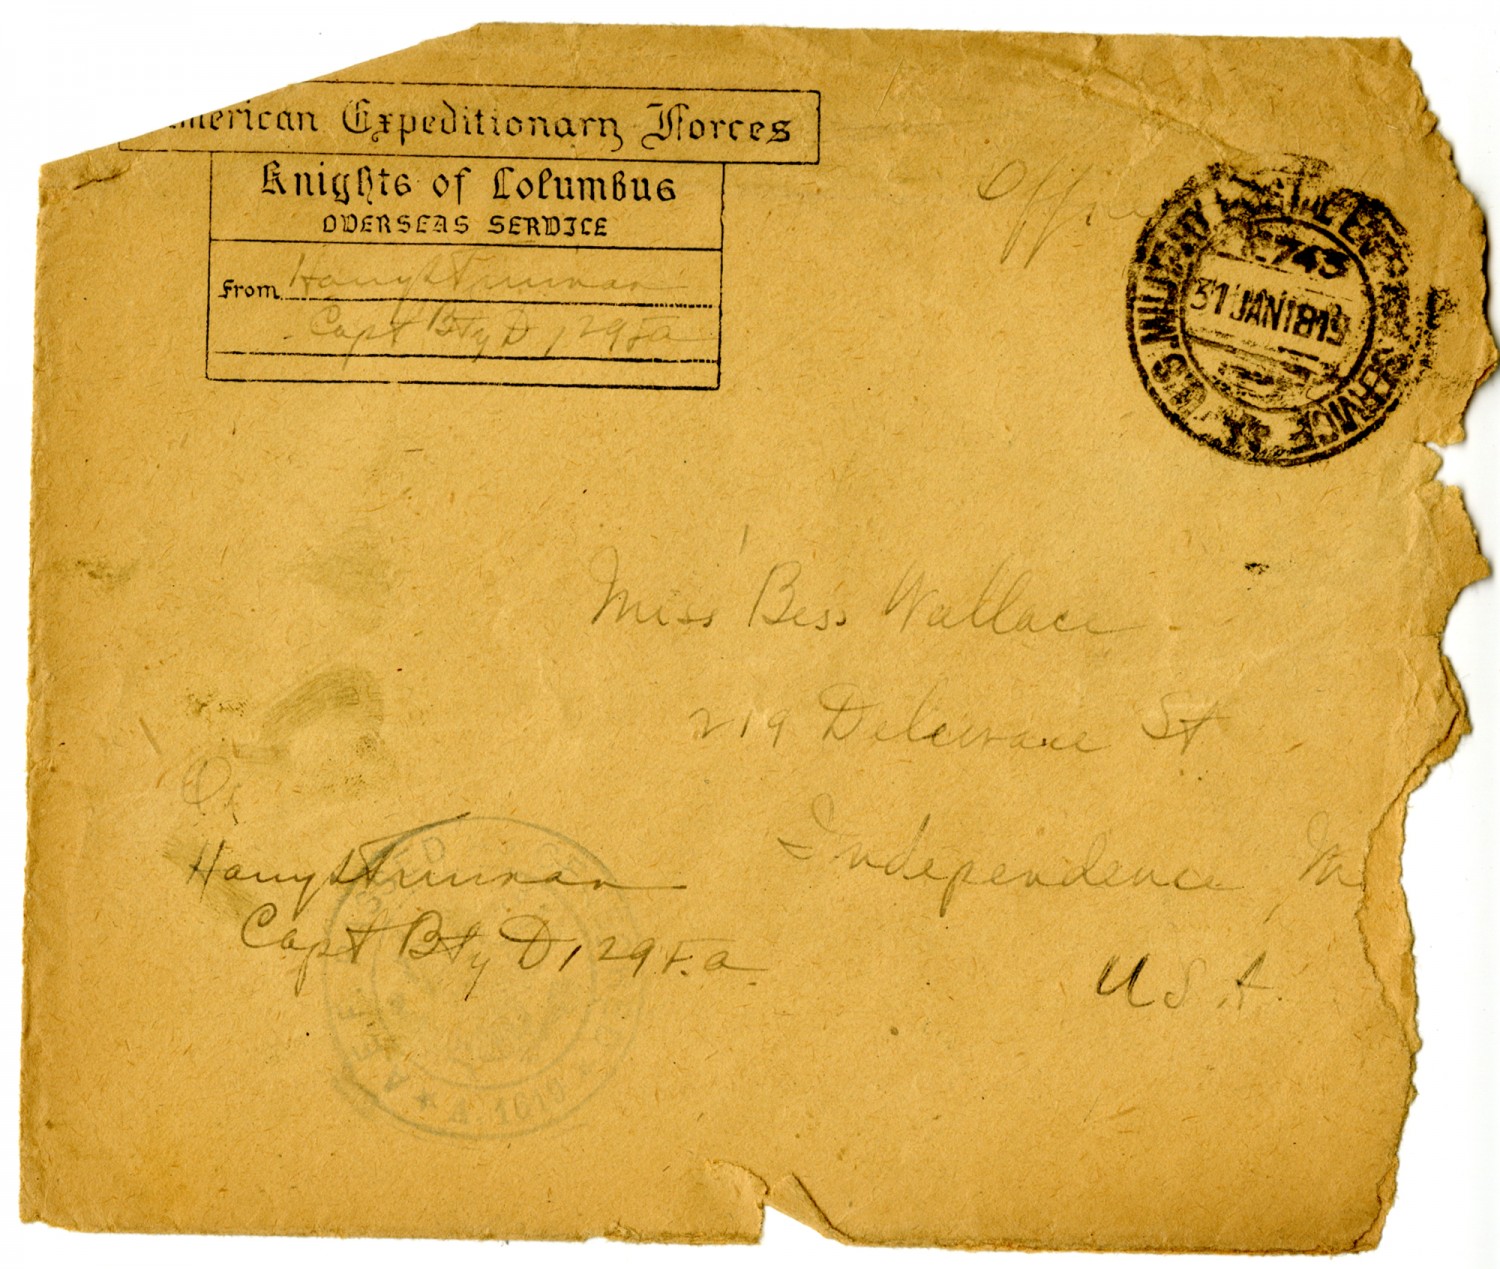 American Expeditionary Forces
Knights of Columbus
OVERSEAS SERVICE
From Harry S Truman
Capt Bty D 129 FA
U.S. MILITARY POSTAL EXPRESS SERVICE
743
31 JAN 1819
Miss Bess Wallace
219 Delaware St
Independence, M
U S A.
Harry S Truman
Capt Bty D 129 F.A
A.E.F. PASSED
A 1010